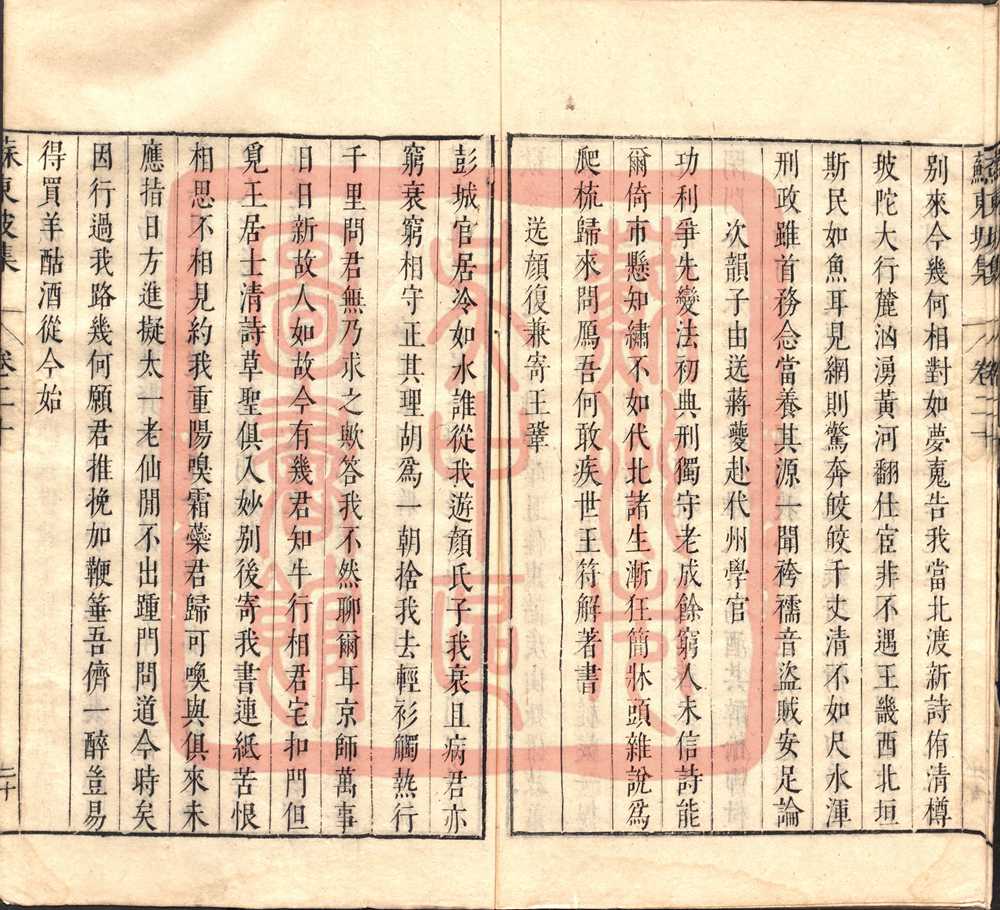 蘇東坡集 卷二十
別來今幾何相對如夢寬告我當北渡新詩侑清樽
坡陀大行麓洶湧黃河翻仕宦非不遇王畿西北垣
斯民如魚耳見網則驚奔皎皎千丈清不如尺水渾
刑政雖首務念當養其源一聞袴襦音盜賊安足論
次韻子由送蔣夔赴代州學官
功利爭先變法初典刑獨守老成餘窮人未信詩能
爾倚市懸知繡不如代北諸生漸狂簡牀頭雜說爲
爬梳歸來問鴈吾何敢疾世王符解著書
送顏復兼寄王鞏
彭城官居冷如水誰從我遊顏氏子我衰且病君亦
窮衰窮相守正其理胡爲一朝捨我去輕衫觸熱行
千里問君無乃求之歟答我不然聊爾耳京師萬事
日日新故人如故今有幾君知牛行相君宅扣門但
覓王居士清詩草聖俱入妙別後寄我書連紙苦恨
相思不相見約我重陽嗅霜蘂君歸可喚與俱來未
應指日方進擬太一老仙閒不出踵門問道今時矣
因行過我路幾何願君推挽加鞭箠吾儕一醉豈易
得買羊酤酒從今始
蘇東坡集 卷二十 二十